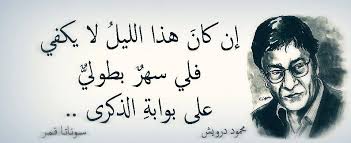 إن كانَ هذا الليلُ لا يكفي
فلي سهرٌ بطوليٌّ
على بوابةِ الذكرى ..
محمود درويش
سوناتا قمر